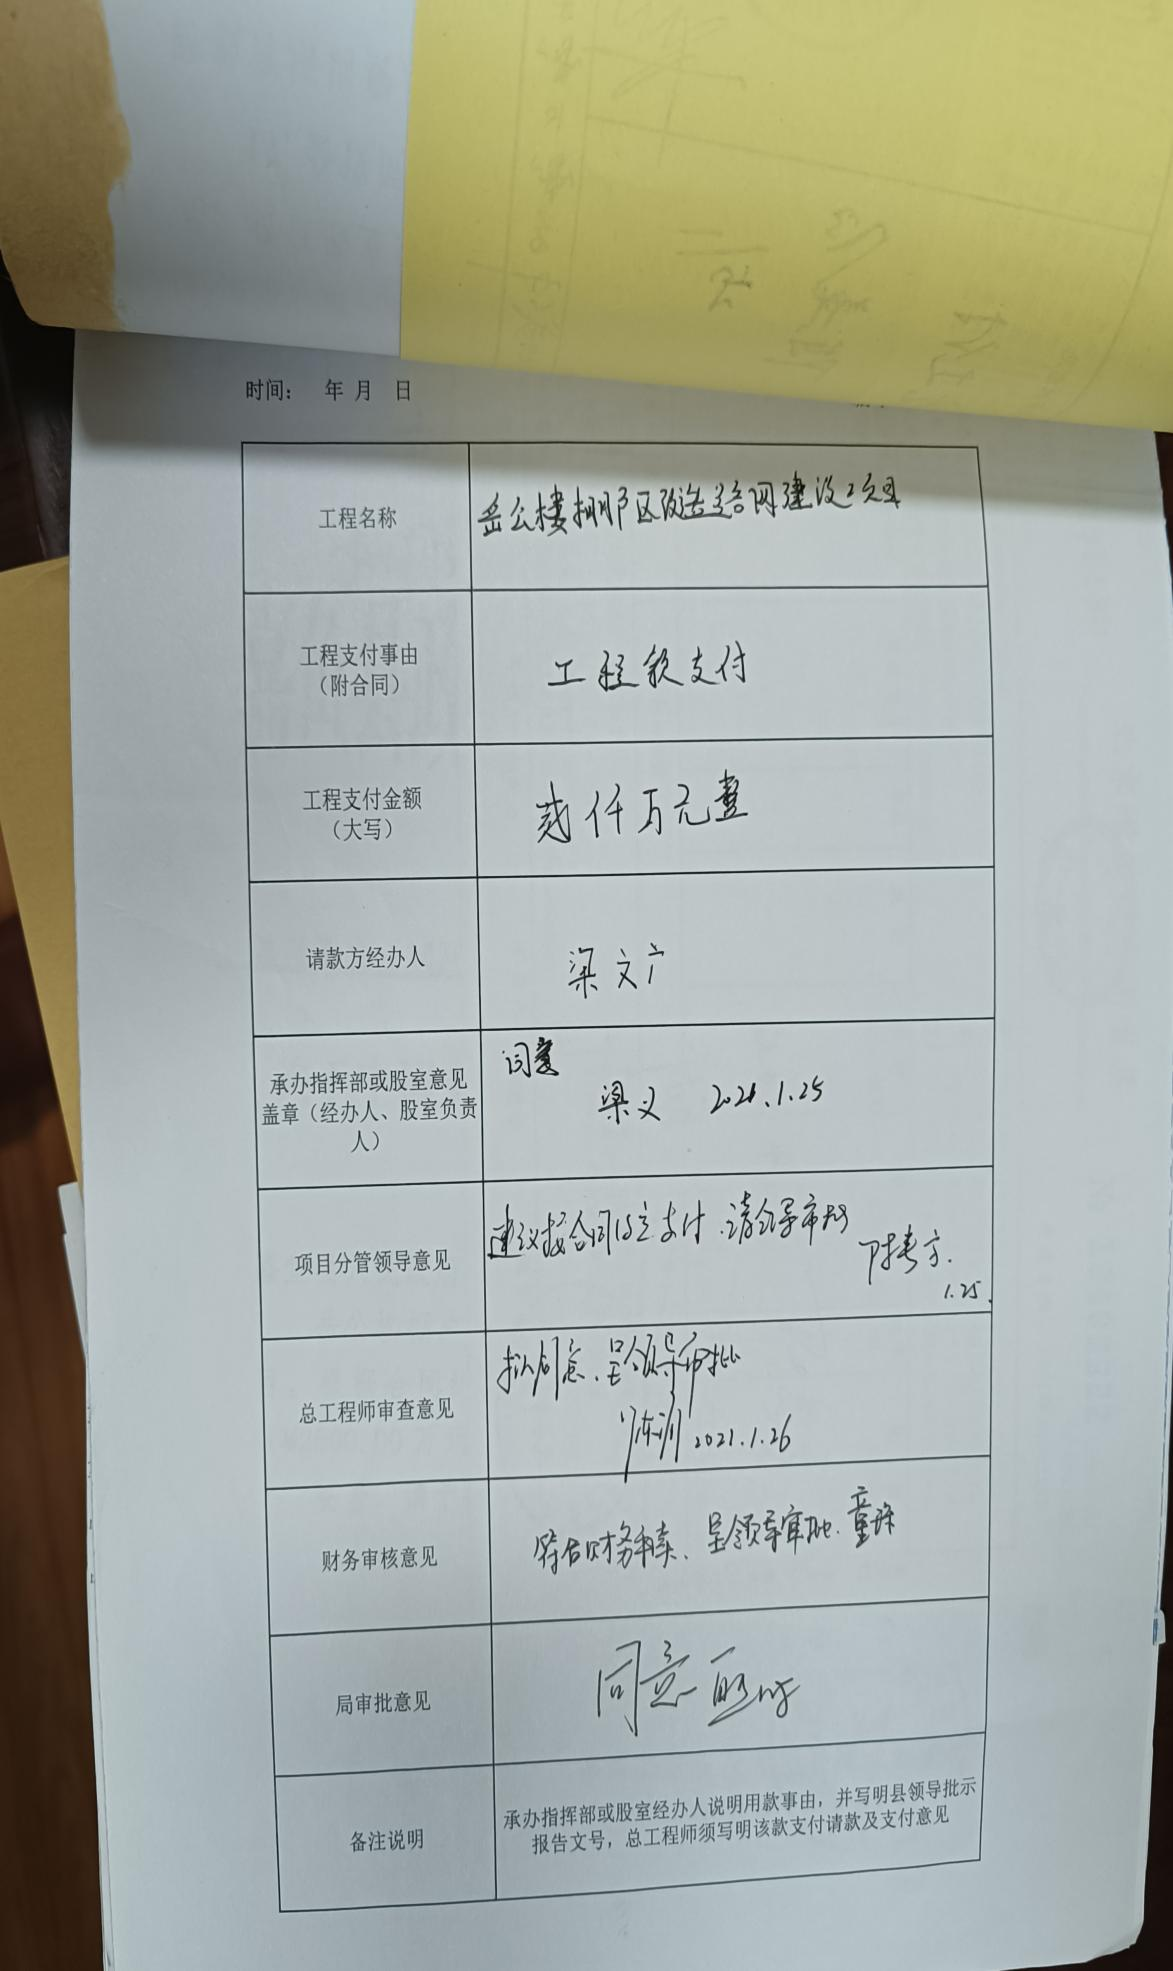 时间： 年 月 日
工程名称
岳公楼棚户区改造路网建设工程项目
工程支付事由
（附合同）
工程款支付
工程支付金额
（大写）
贰仟万元整
请款方经办人
梁文广
承办指挥部或股室意见
盖章（经办人、股室负责
人）
同意
梁义 2021.1.25
项目分管领导意见
建议按合同约定支付.请领导审批
1.25.
总工程师审查意见
拟同意、呈领导审批
2021.1.26
财务审核意见
符合财务手续、呈领导审批.
局审批意见
同意
备注说明
承办指挥部或股室经办人说明用款事由，并写明县领导批示
报告文号，总工程师须写明该款支付请款及支付意见